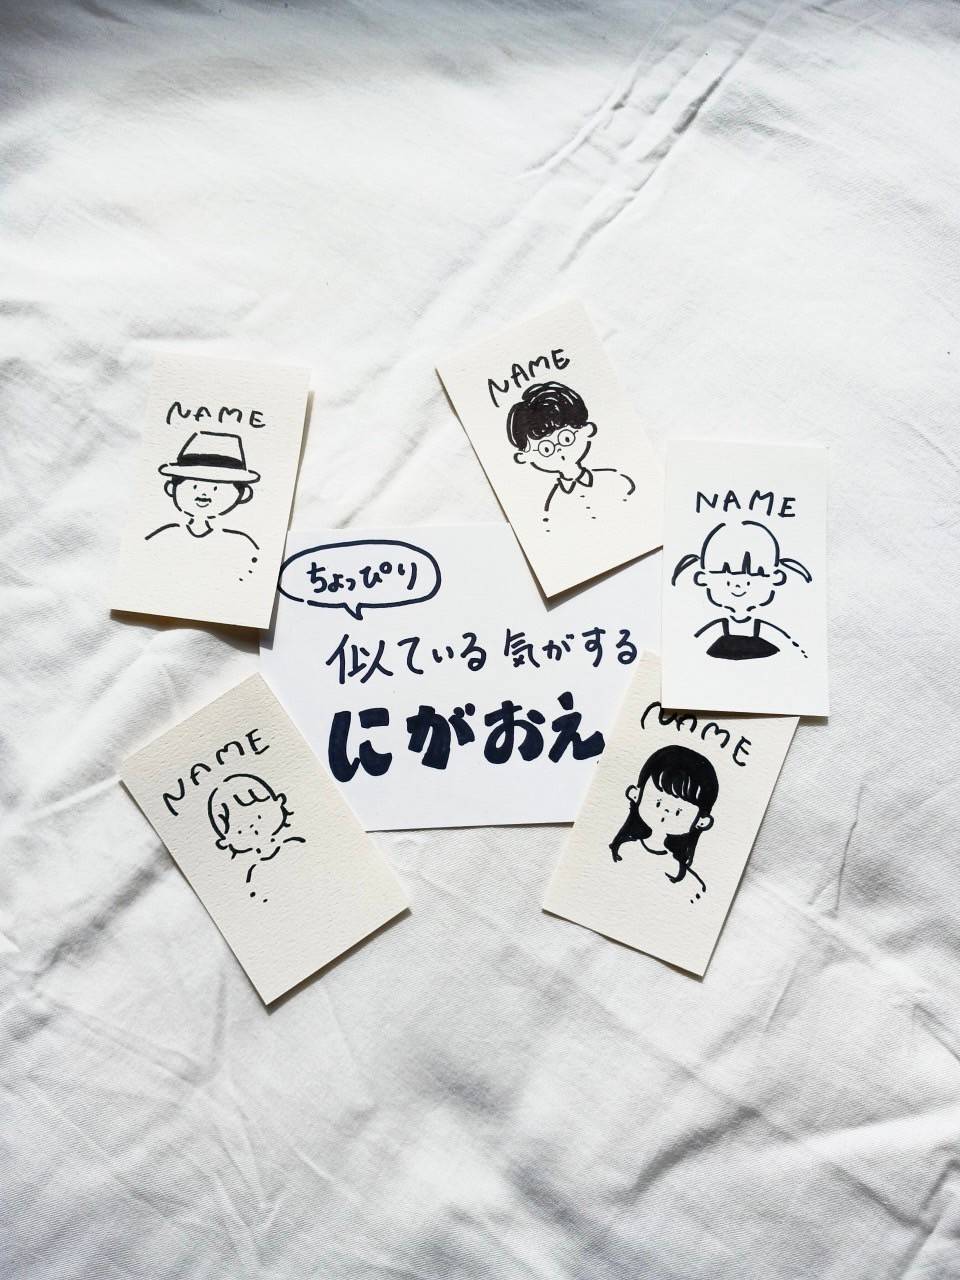 NAME
NAME
NAME
ちょっぴり
似ている気がする
にがおえ
NAME
NAME